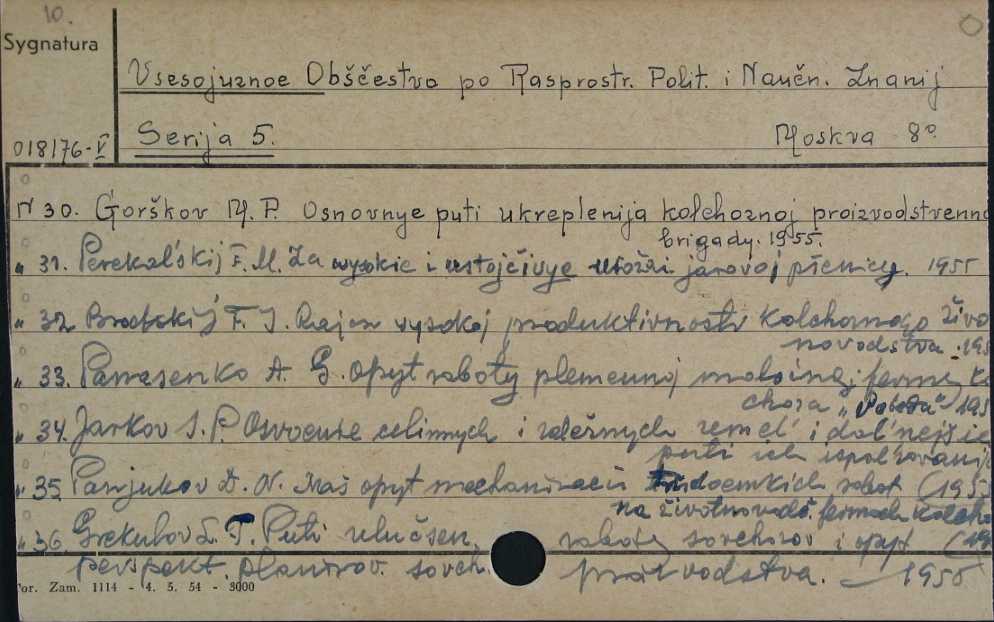 10.
Sygnatura
Vsesojuznoe Obščestvo po Rasprostr. Polit. i Naučn. Znanij
018176-V
Serija 5. Moskva 8°
N 30. Gorškov M. P. Osnovnye puti ukreplenija kolchoznoj proizvodstvenno
brigady. 1955.
„ 31. Perekal'skij F. M. Za wysokie i ustojčivye urožai jarovoj pšenicy. 1955
„ 32 Brodskij F. I. Rajon vysokoj produktivnosti kolchoznogo živo
novodstva . 195
„ 33. Panasenko A. G. Opyt raboty plemennoj moločnoj fermy ko
choza „Pobeda" 195
„ 34. Jarkov S. P. Osvoenie celinnych i zaležnych zemel' i dal'nejšie
puti ich ispol'zovanija
„ 35. Panjukov D. N. Naš opyt mechanizacii trudoemkich rabot (1955
na životnovodč. fermach kolcho
„ 36. G. Puti ulučšen. raboty sovchozov i opyt (19
perspekt. planirov. sovch. proizvodstva. — 1955
For. Zam. 1114 - 4. 5. 54 - 3000